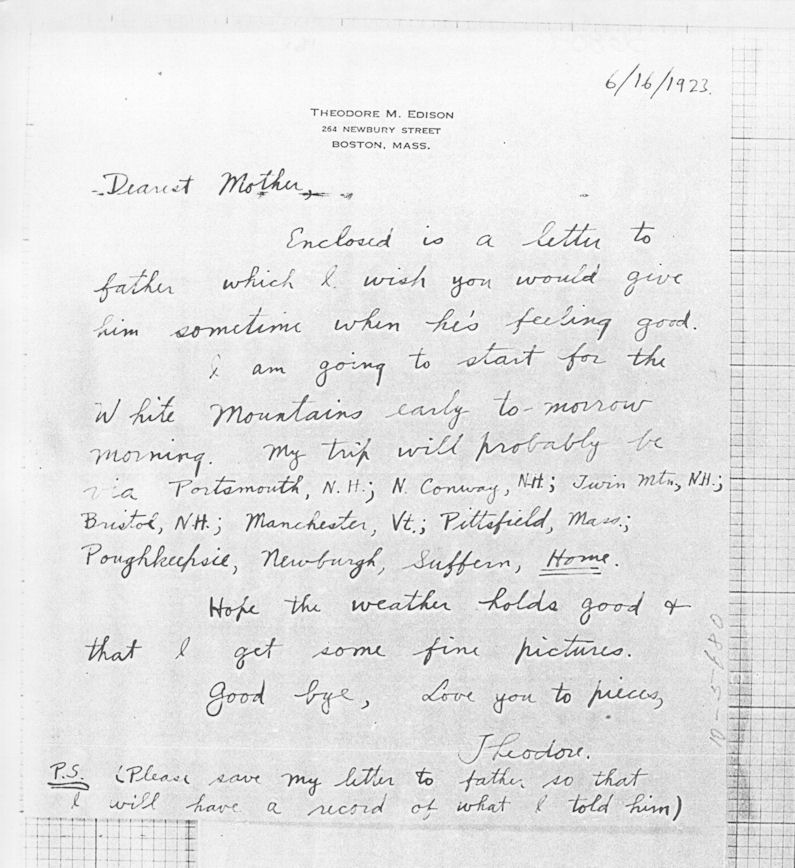 6/16/1923.
THEODORE M. EDISON
264 NEWBURY STREET
BOSTON, MASS.
Dearest Mother,
Enclosed is a letter to
father which I wish you would give
him sometime when he's feeling good.
I am going to start for the
White Mountains early to-morrow
morning. My trip will probably be
via Portsmouth, N.H.; N. Conway, N.H.; Twin Mtn, N.H.;
Bristol, N.H.; Manchester, Vt.; Pittsfield, Mass.;
Poughkeepsie, Newburgh, Suffern, Home.
Hope the weather holds good &
that I get some fine pictures.
Good bye, Love you to pieces,
Theodore.
P.S. (Please save my letter to father so that
I will have a record of what I told him)